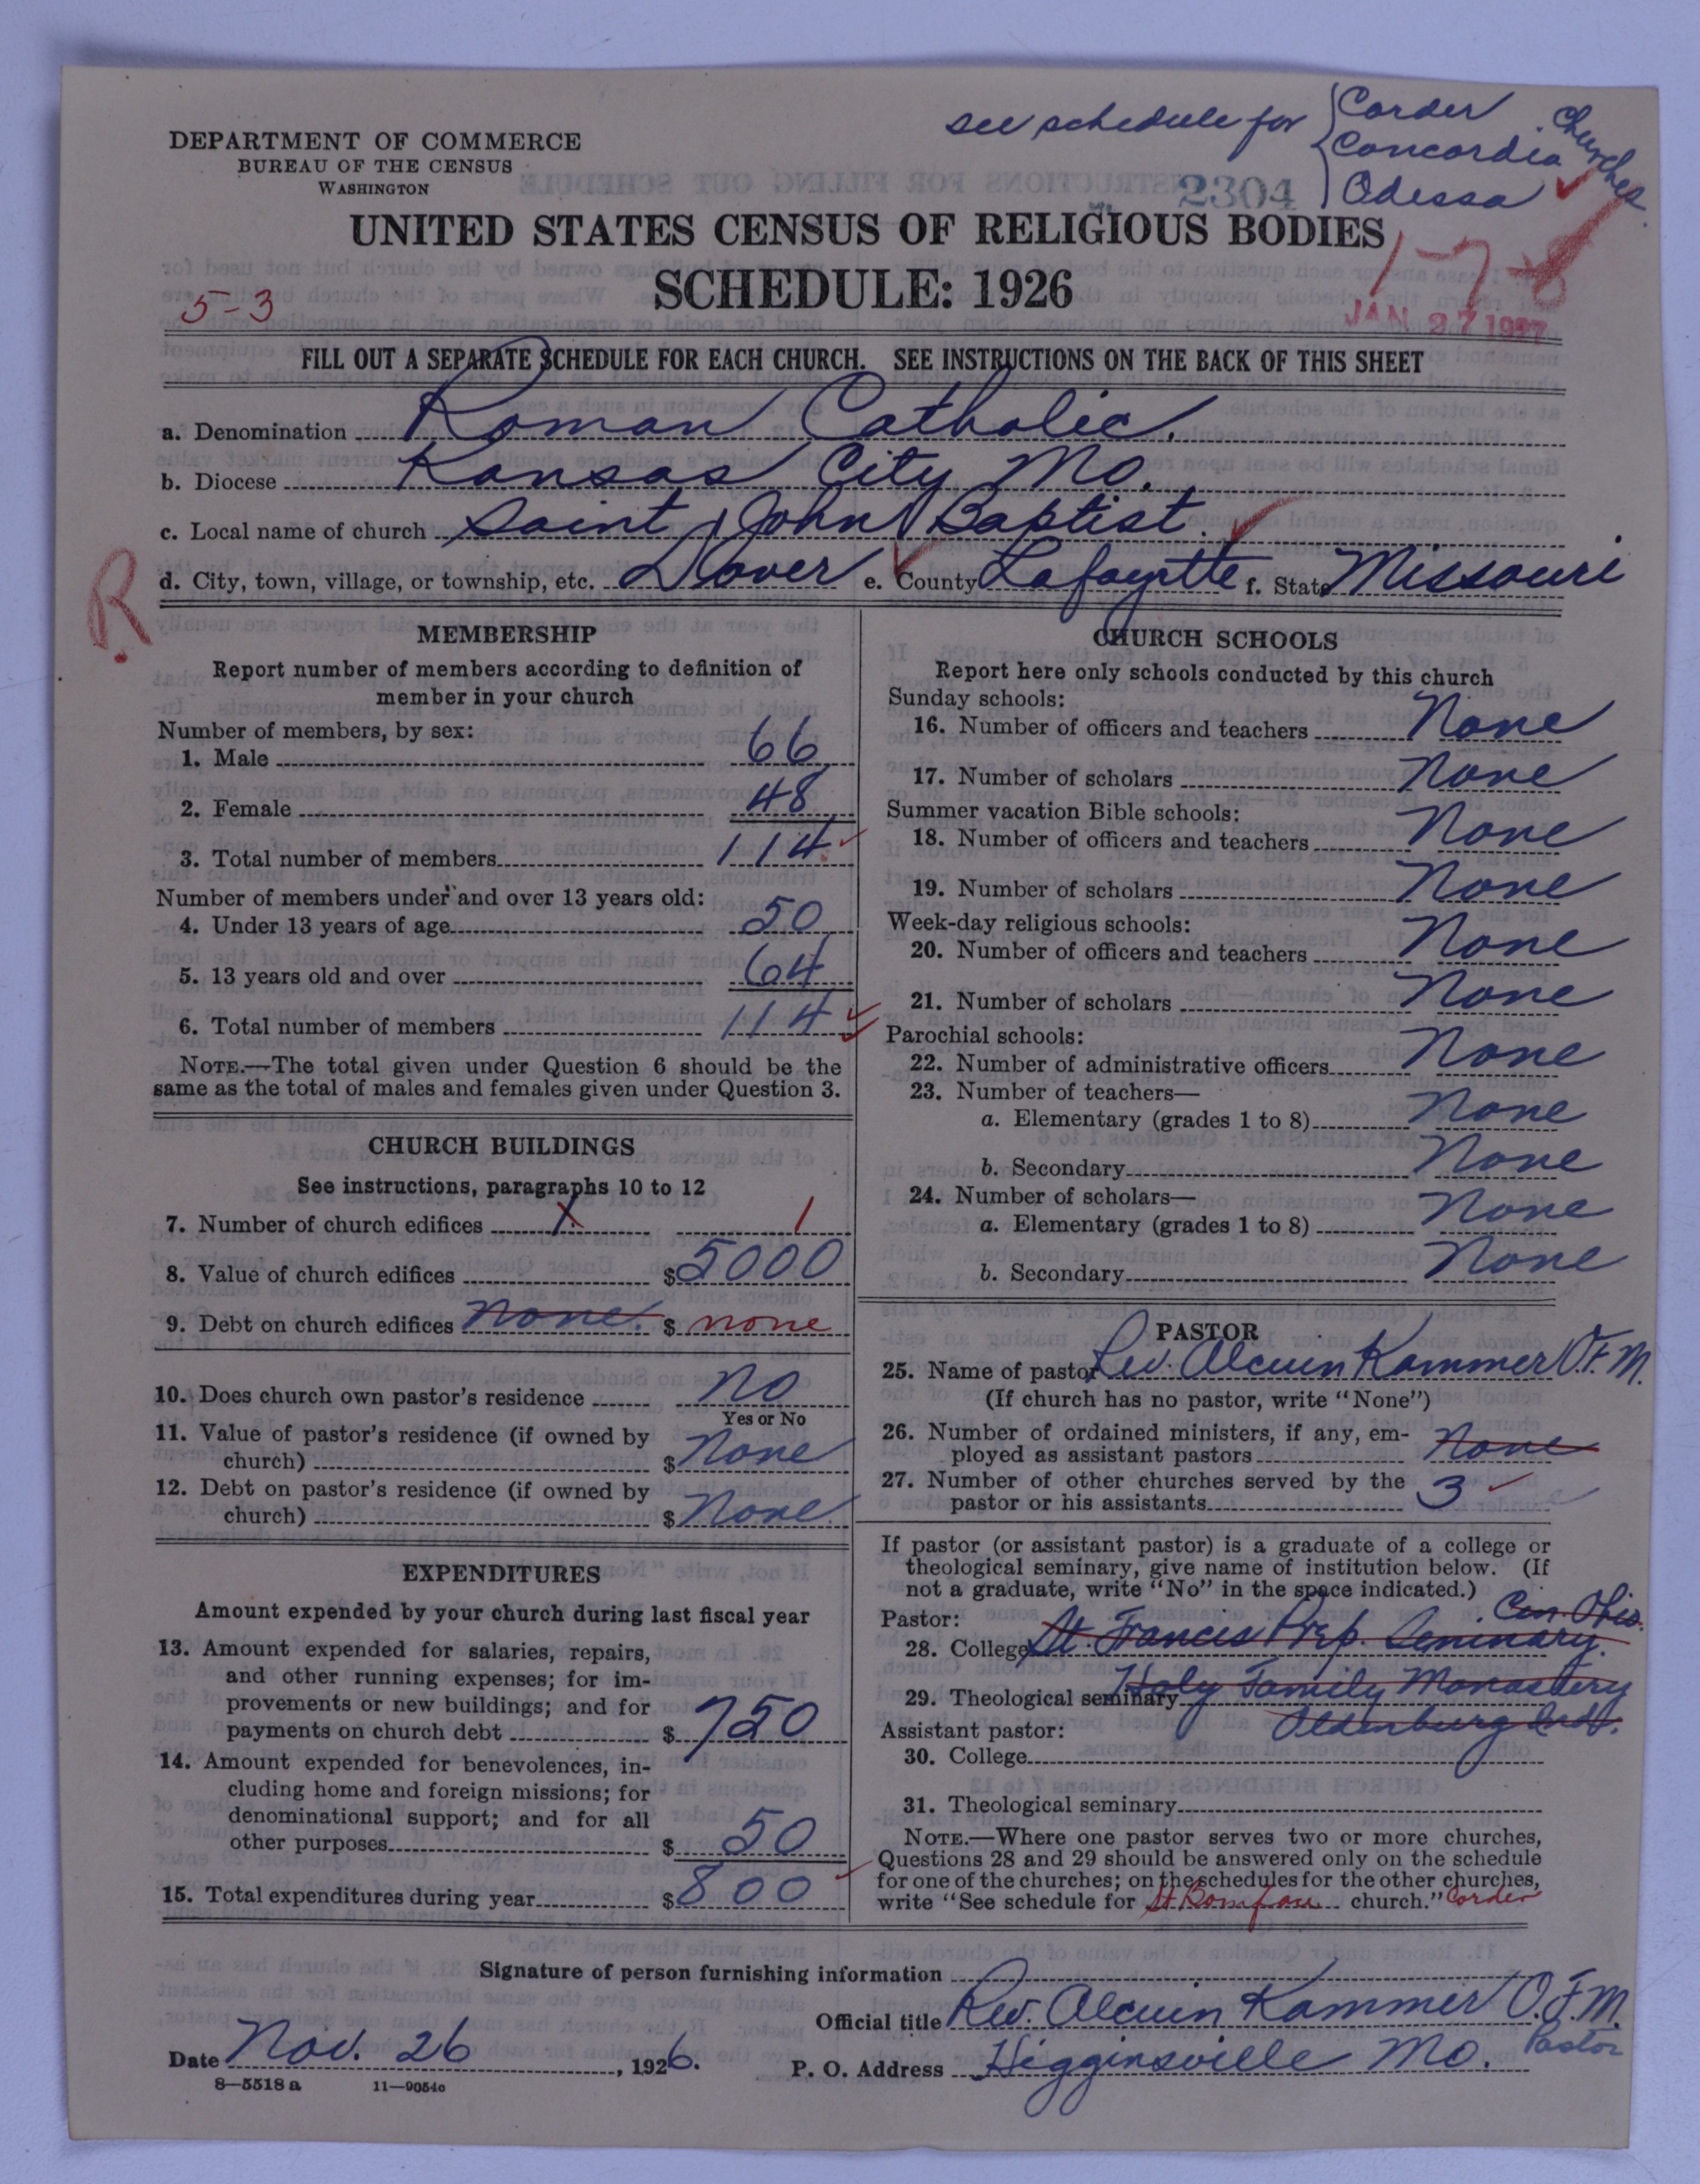 see schedule for { Corder
Concordia Churches
Odessa
DEPARTMENT OF COMMERCE
BUREAU OF THE CENSUS
WASHINGTON
2304
UNITED STATES CENSUS OF RELIGIOUS BODIES
SCHEDULE: 1926
5-3
1-7-8
JAN 27 1927
FILL OUT A SEPARATE SCHEDULE FOR EACH CHURCH. SEE INSTRUCTIONS ON THE BACK OF THIS SHEET
a. Denomination Roman Catholic.
b. Diocese Kansas City Mo.
c. Local name of church Saint John Baptist
d. City, town, village, or township, etc. Dover e. County Lafayette f. State Missouri
R
MEMBERSHIP
Report number of members according to definition of
member in your church
Number of members, by sex:
1. Male 66
2. Female 48
3. Total number of members 114
Number of members under and over 13 years old:
4. Under 13 years of age 50
5. 13 years old and over 64
6. Total number of members 114
NOTE.—The total given under Question 6 should be the
same as the total of males and females given under Question 3.
CHURCH BUILDINGS
See instructions, paragraphs 10 to 12
7. Number of church edifices 1 1
8. Value of church edifices $5000
9. Debt on church edifices None. $ none
10. Does church own pastor's residence No
Yes or No
11. Value of pastor's residence (if owned by
church) $ None
12. Debt on pastor's residence (if owned by
church) $ None
EXPENDITURES
Amount expended by your church during last fiscal year
13. Amount expended for salaries, repairs,
and other running expenses; for im-
provements or new buildings; and for
payments on church debt $ 750
14. Amount expended for benevolences, in-
cluding home and foreign missions; for
denominational support; and for all
other purposes $ 50
15. Total expenditures during year $ 800
CHURCH SCHOOLS
Report here only schools conducted by this church
Sunday schools:
16. Number of officers and teachers None
17. Number of scholars None
Summer vacation Bible schools:
18. Number of officers and teachers None
19. Number of scholars None
Week-day religious schools:
20. Number of officers and teachers None
21. Number of scholars None
Parochial schools:
22. Number of administrative officers None
23. Number of teachers—
a. Elementary (grades 1 to 8) None
b. Secondary None
24. Number of scholars—
a. Elementary (grades 1 to 8) None
b. Secondary None
PASTOR
25. Name of pastor Rev. Alcuin Kammer O.F.M.
(If church has no pastor, write "None")
26. Number of ordained ministers, if any, em-
ployed as assistant pastors None
27. Number of other churches served by the
pastor or his assistants 3
If pastor (or assistant pastor) is a graduate of a college or
theological seminary, give name of institution below. (If
not a graduate, write "No" in the space indicated.)
Pastor: Cin. Ohio.
28. College St. Francis Prep. Seminary.
29. Theological seminary Holy Family Monastery
Oldenburg Ind.
Assistant pastor:
30. College
31. Theological seminary
NOTE.—Where one pastor serves two or more churches,
Questions 28 and 29 should be answered only on the schedule
for one of the churches; on the schedules for the other churches,
write "See schedule for St. church." Corder
Signature of person furnishing information
Official title Rev. Alcuin Kammer O.F.M.
Pastor
Date Nov. 26, 1926. P. O. Address Higginsville Mo.
8—5518 a 11—9054c